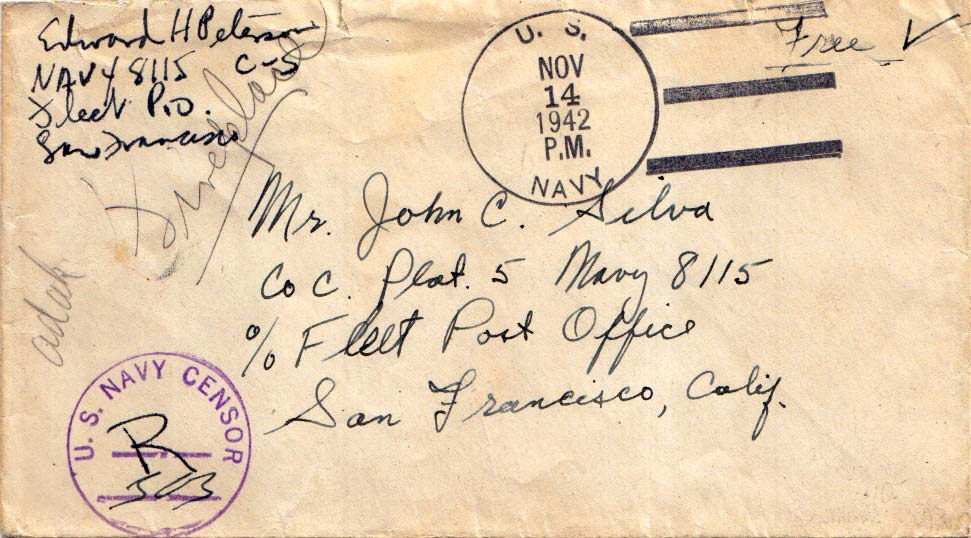 Edward H Peterson
NAVY 8115 C-5
Fleet P.O.
San Francisco
U. S.
NOV
14
1942
P.M.
NAVY
Free
Mr. John C. Silva
Co C. Plat. 5 Navy 8115
% Fleet Post Office
San Francisco, Calif.
adak
U. S. NAVY CENSOR
R
303